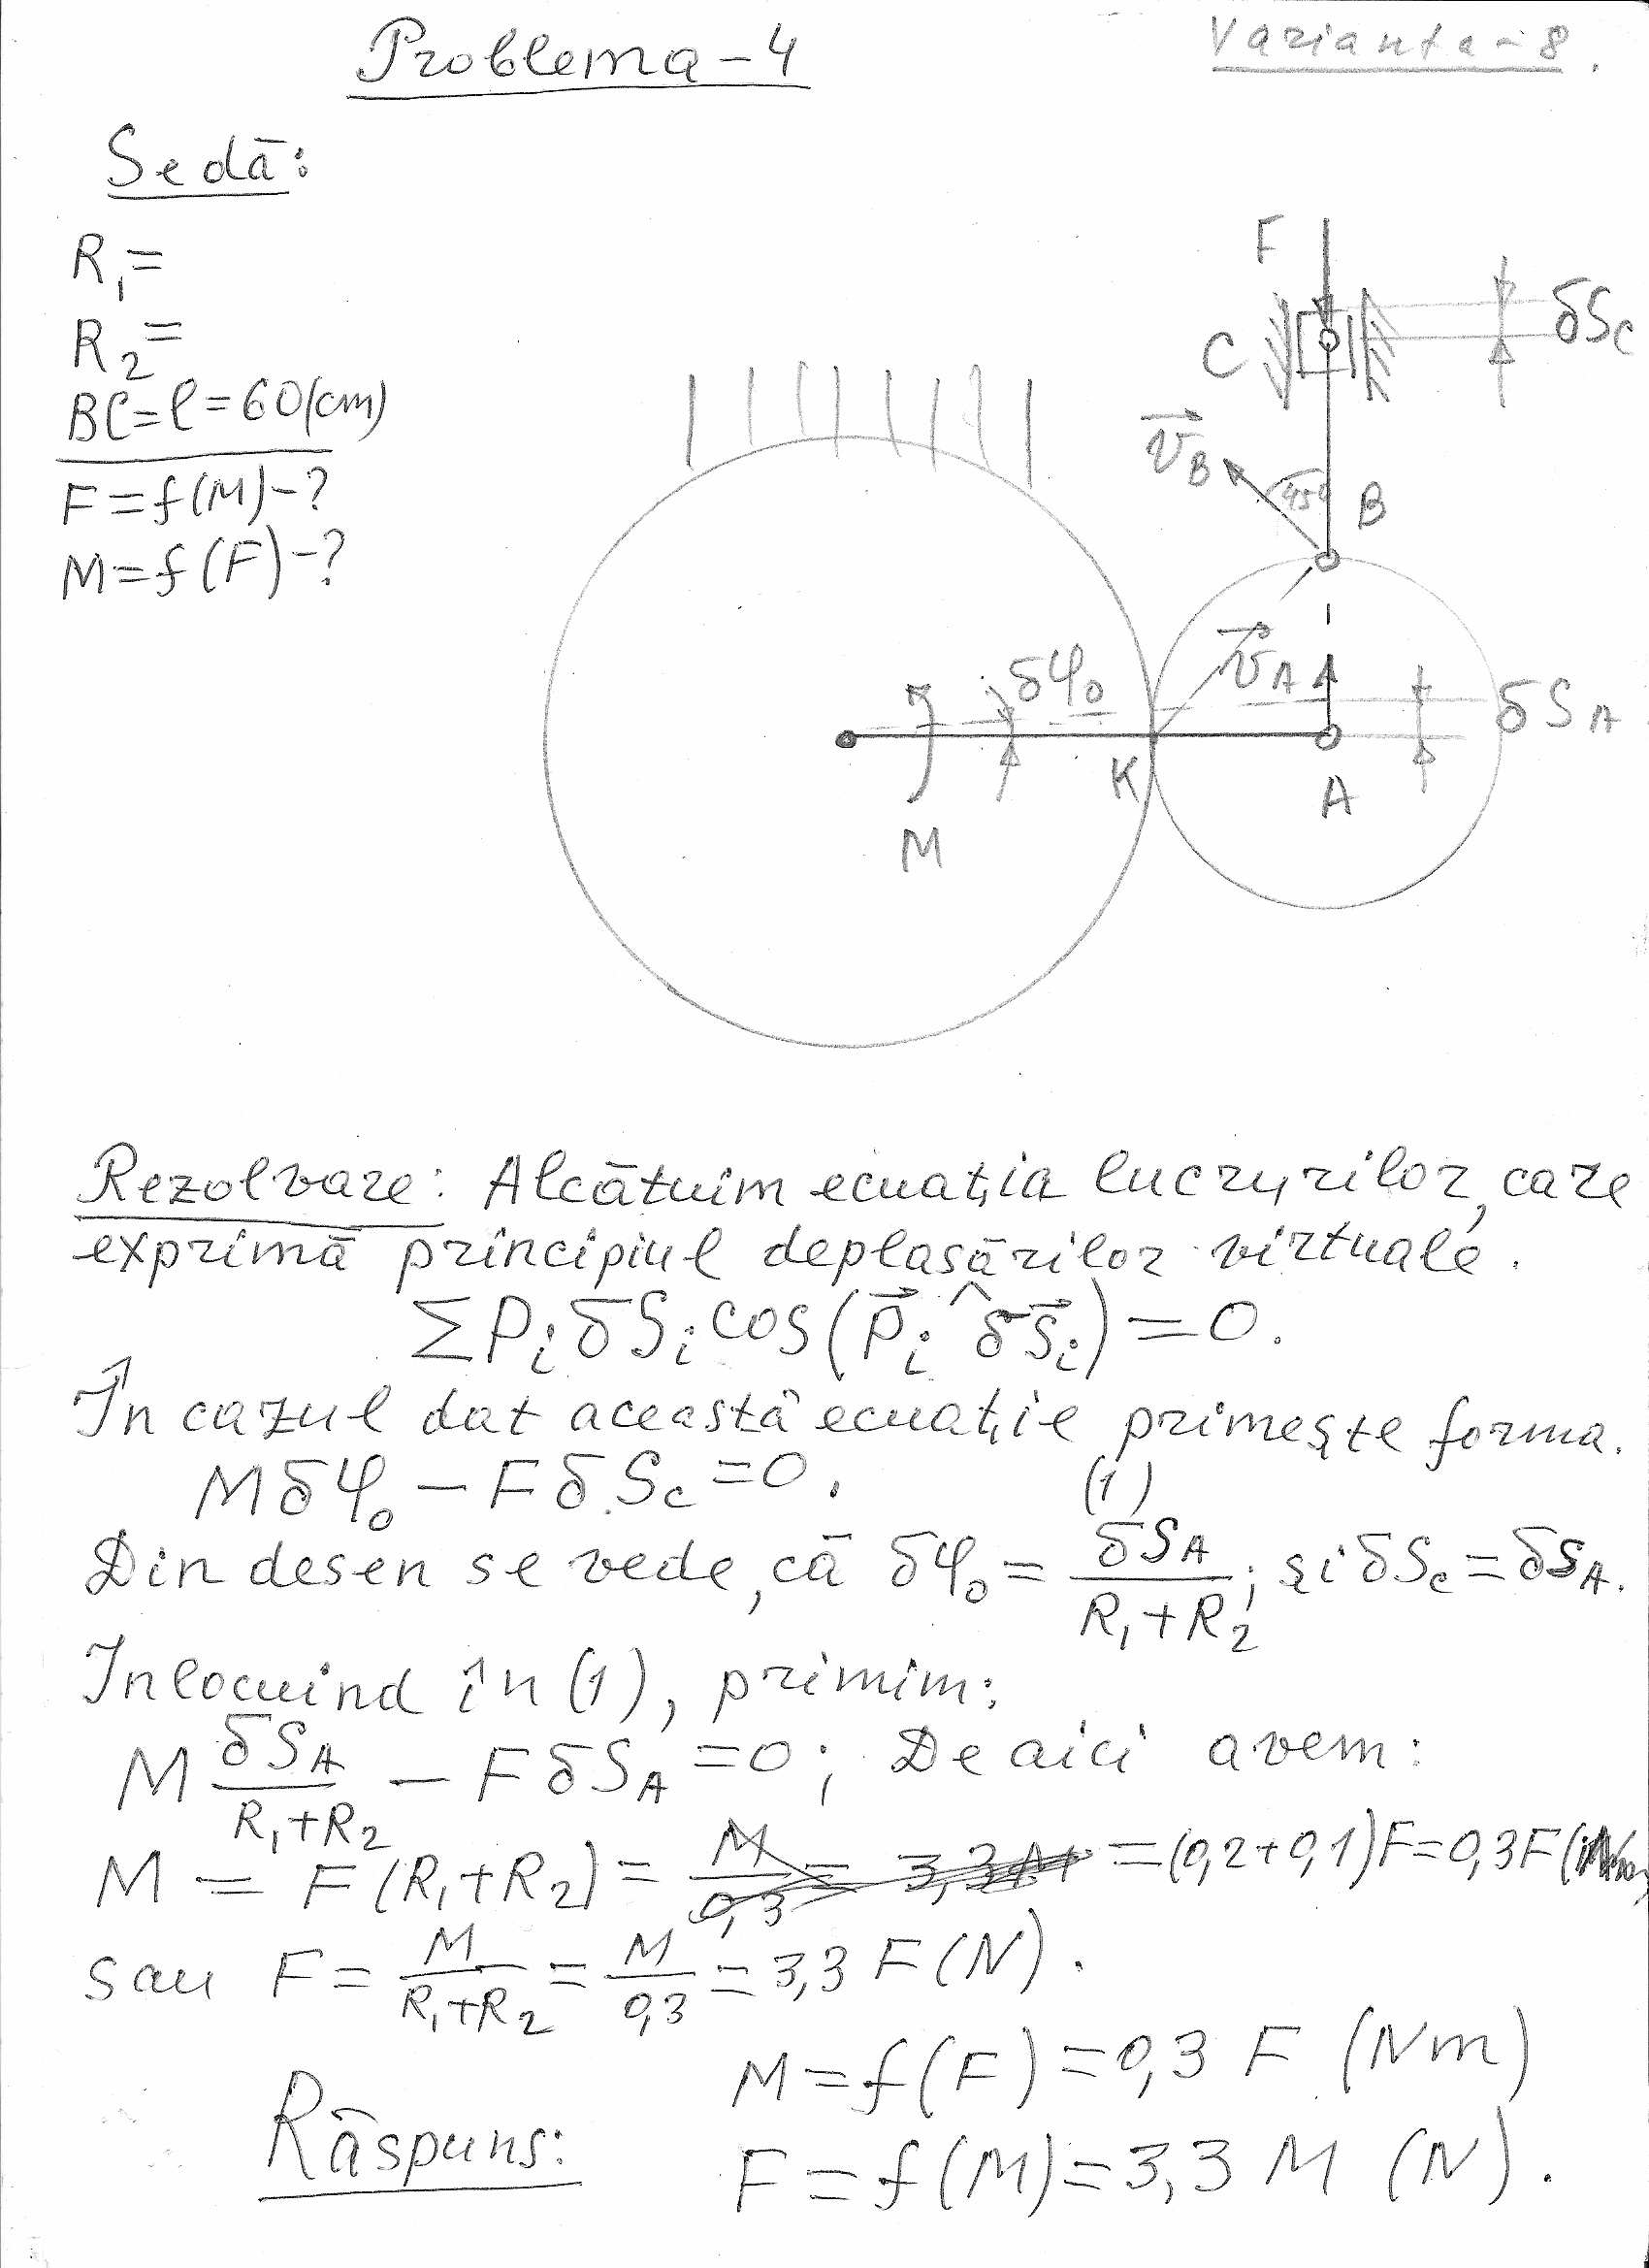 Problema-4
Varianta-8.
Se dă:
R₁=
R₂=
BC=l=60(cm)
F=f(M)-?
M=f(F)-?
F
C
δS_C
v⃗_B
45°
B
δφ₀
v⃗_A
δS_A
K
A
M
Rezolvare: Alcătuim ecuația lucrurilor, care
exprimă principiul deplasărilor virtuale.
ΣP_i δS_i cos(P⃗_i ^ δS⃗_i)=0.
În cazul dat această ecuație primește forma.
Mδφ₀ - FδS_c = 0. (1)
Din desen se vede, că δφ₀ = δS_A/(R₁+R₂); și δS_c = δS_A.
Inlocuind în (1), primim:
M δS_A/(R₁+R₂) - FδS_A = 0; De aici avem:
M = F(R₁+R₂) = =(0,2+0,1)F=0,3F
sau F = M/(R₁+R₂) = M/0,3 = 3,3 F(N).
M=f(F)=0,3 F (Nm)
Răspuns:
F=f(M)=3,3 M (N).